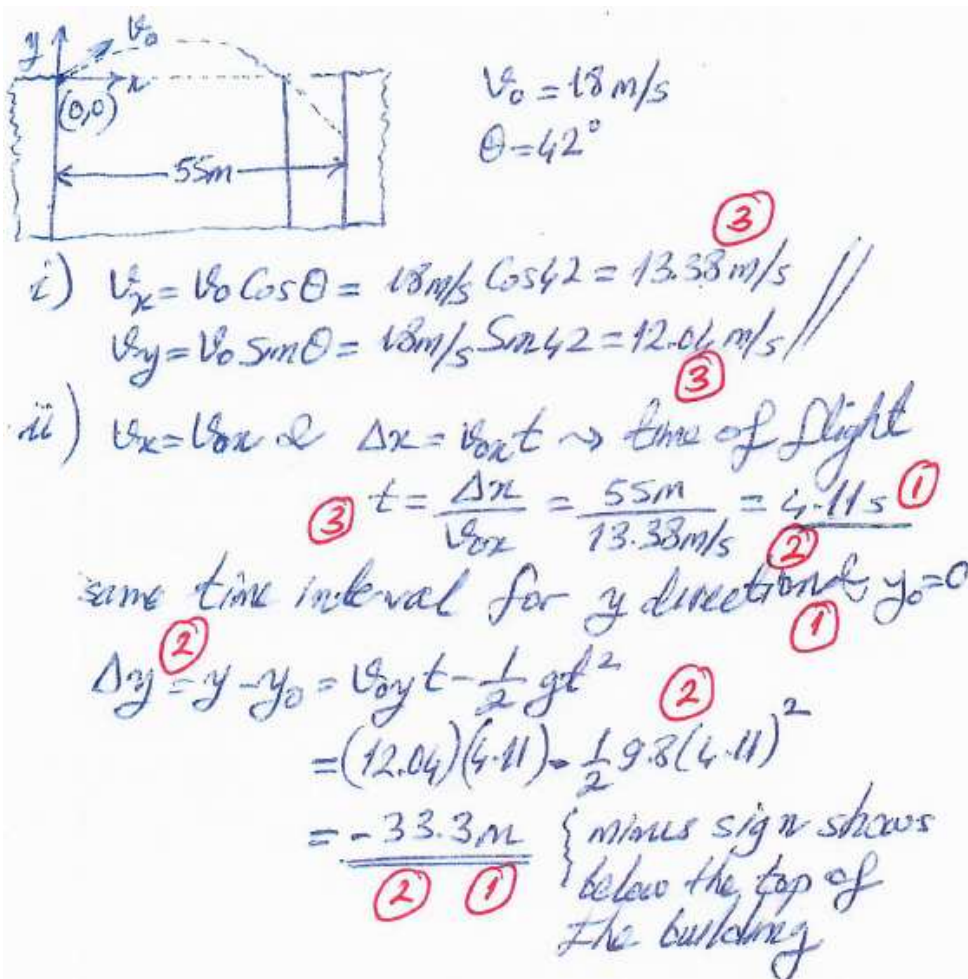 y v₀
x
(0,0)
55m
v₀ = 18 m/s
θ = 42°
③
i) vₓ = v₀ Cosθ = 18m/s Cos42 = 13.38m/s //
v_y = v₀ Sinθ = 18m/s Sin42 = 12.04 m/s
③
ii) vₓ = v₀ₓ & Δx = v₀ₓt → time of flight
③ t = Δx / v₀ₓ = 55m / 13.38m/s = 4.11s ①
②
same time interval for y direction & y₀=0
② ①
Δy = y - y₀ = v₀y t - 1/2 gt²
②
= (12.04)(4.11) - 1/2 9.8(4.11)²
= -33.3m { minus sign shows
② ① below the top of
the building